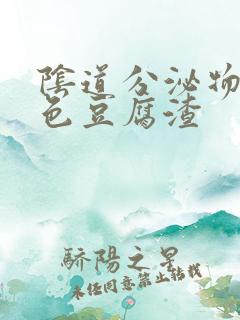 陰道分泌物
色豆腐渣
驕陽之星
未經同意禁止轉載